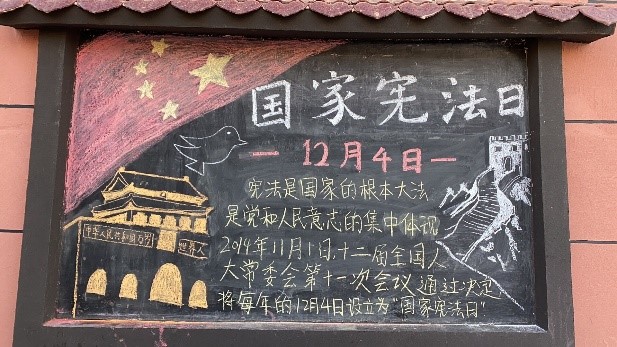 国家宪法日
12月4日
宪法是国家的根本大法
是党和人民意志的集中体现
2014年11月1日,十二届全国人
大常委会第十一次会议通过决定
将每年的12月4日设立为“国家宪法日”
中华人民共和国万岁
世界人